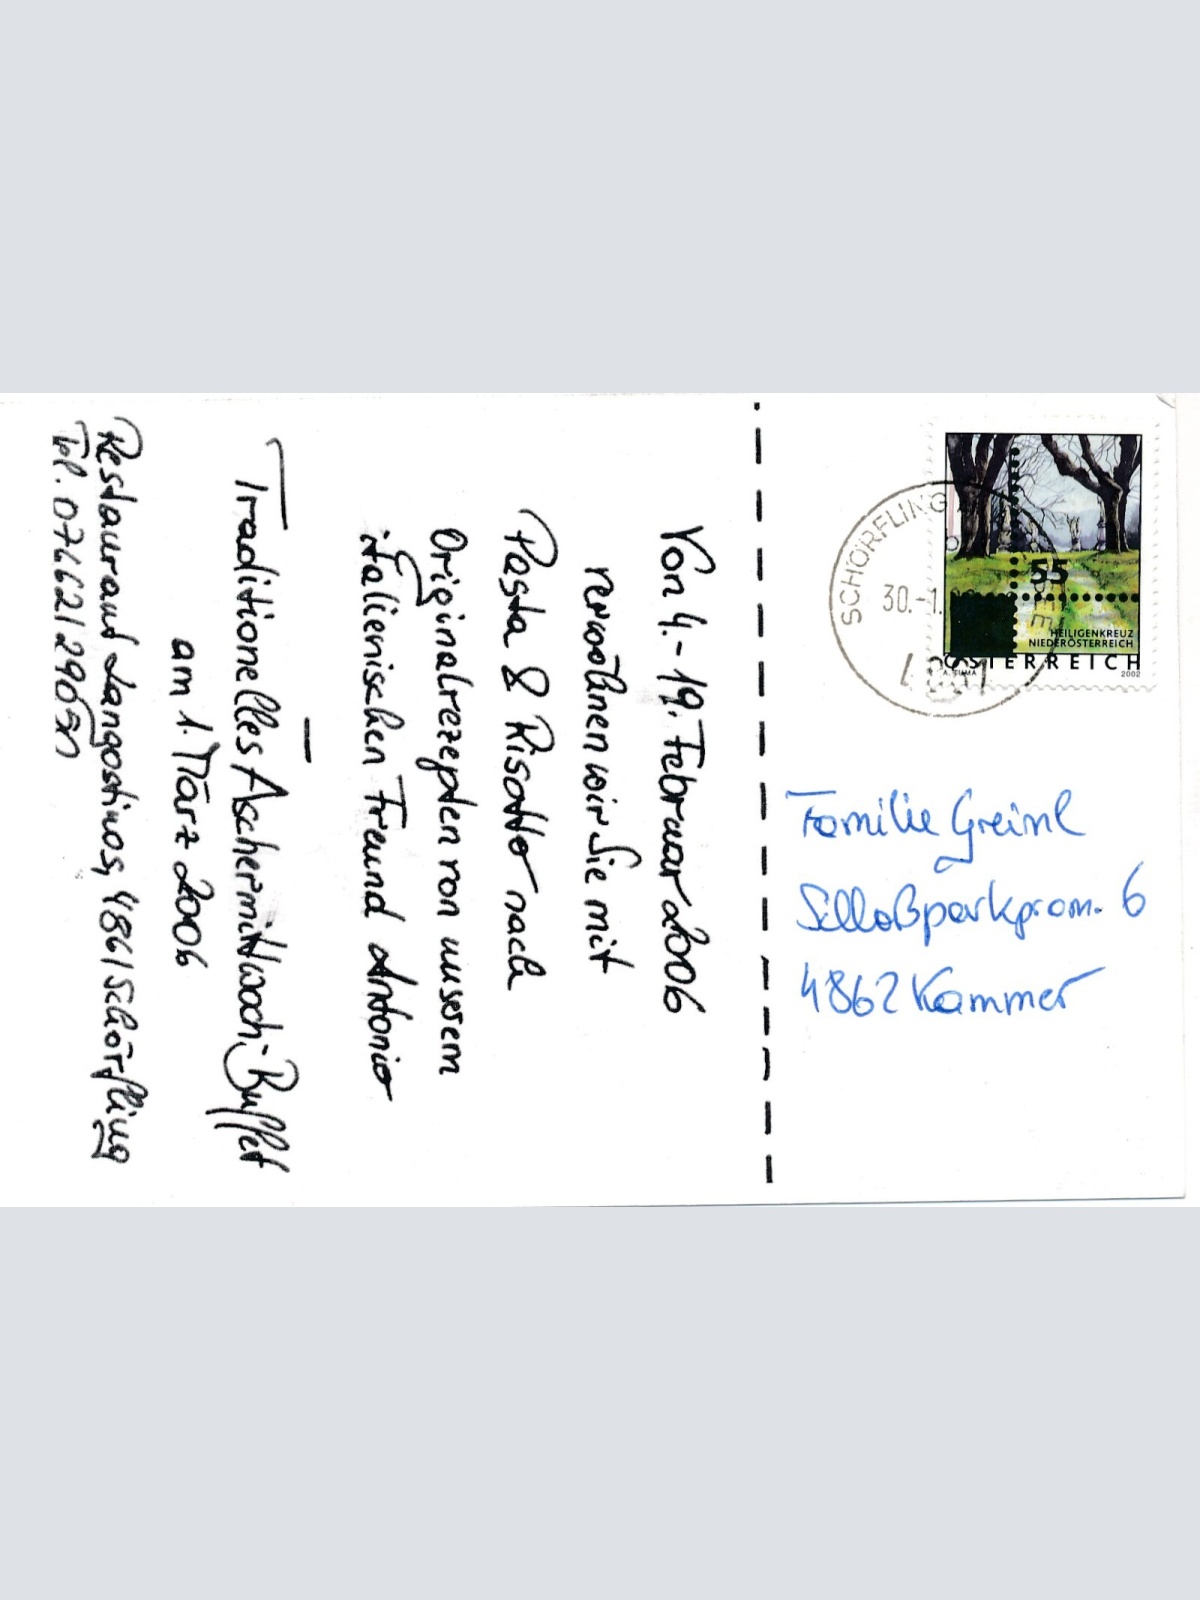 Von 4.-19. Februar 2006
verwöhnen wir Sie mit
Pasta & Risotto nach
Originalrezepten von unserem
italienischen Freund Antonio
—
Traditionelles Aschermittwoch-Buffet
am 1. März 2006
Restaurant Langostinos, 4861 Schörfling
Tel. 07662/29050
SCHÖRFLING
30.-1.
55
HEILIGENKREUZ
NIEDERÖSTERREICH
ÖSTERREICH
2002
Familie Greinl
Schloßparkprom. 6
4862 Kammer